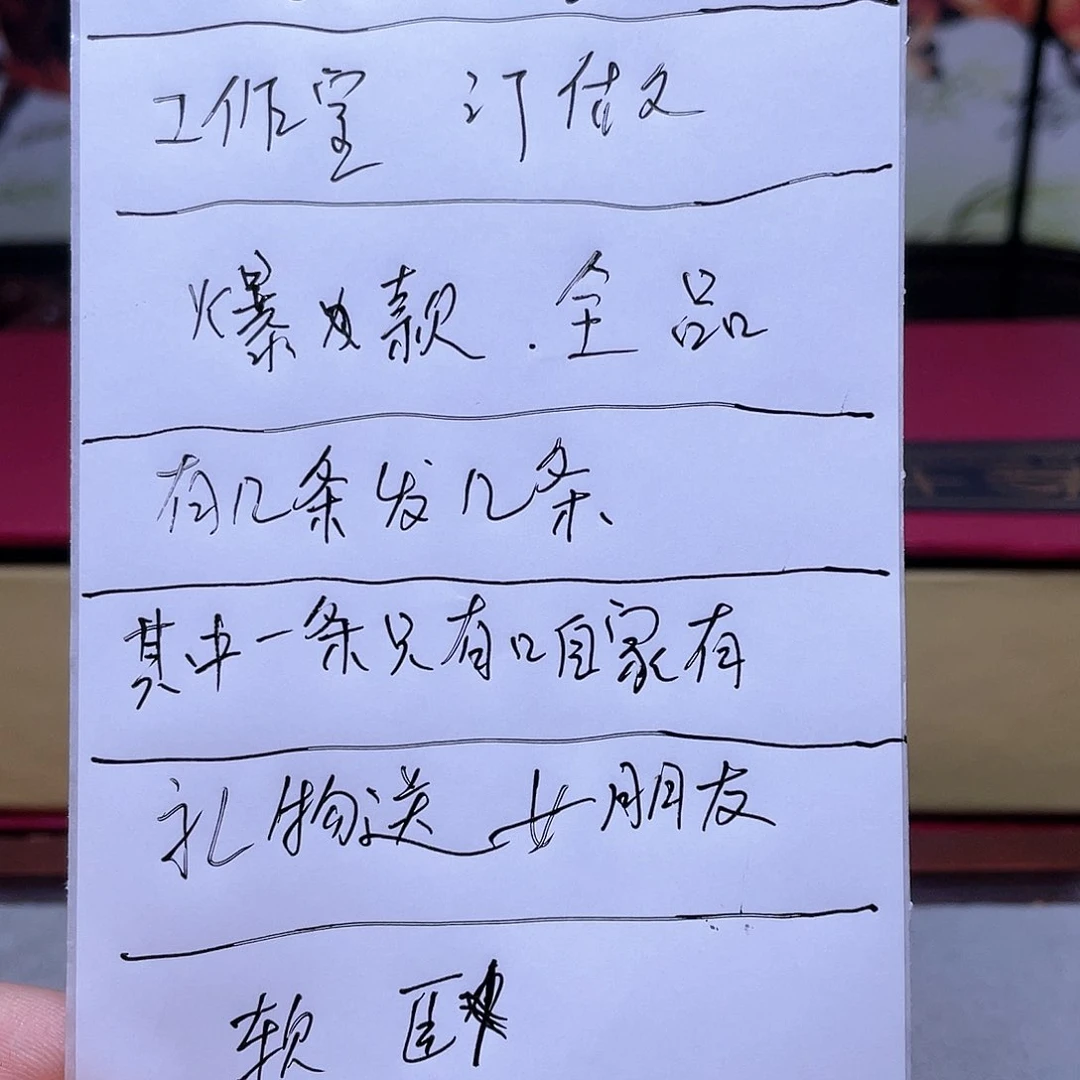 工作室 订做文
爆款.全品
有几条发几条
其中一条只有咱家有
礼物送女朋友
软